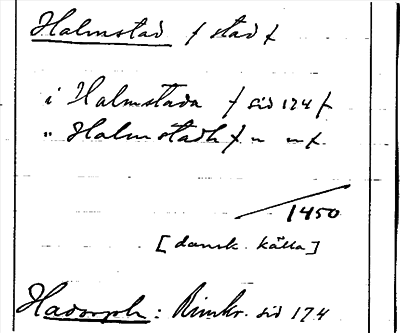 Halmstad / stad /
i Halmstada / sid 174 /
" Halmstadh / " " /
1450
[dansk. källa]
Hadorph: Rimkr. sid 174